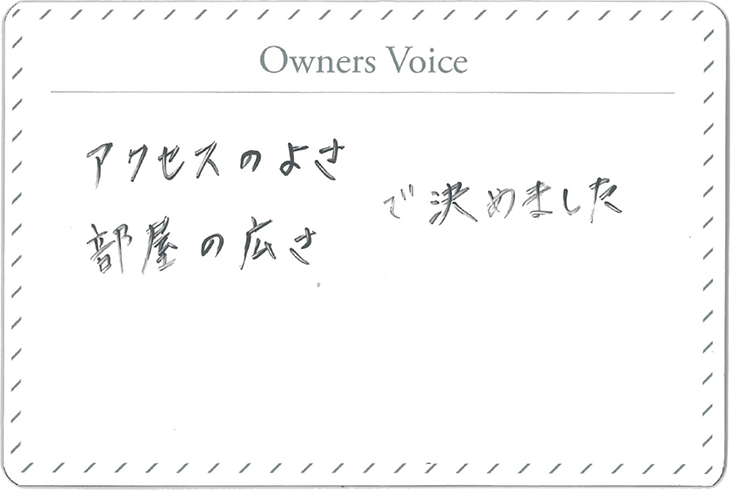 Owners Voice
アクセスのよさ
部屋の広さ
で決めました